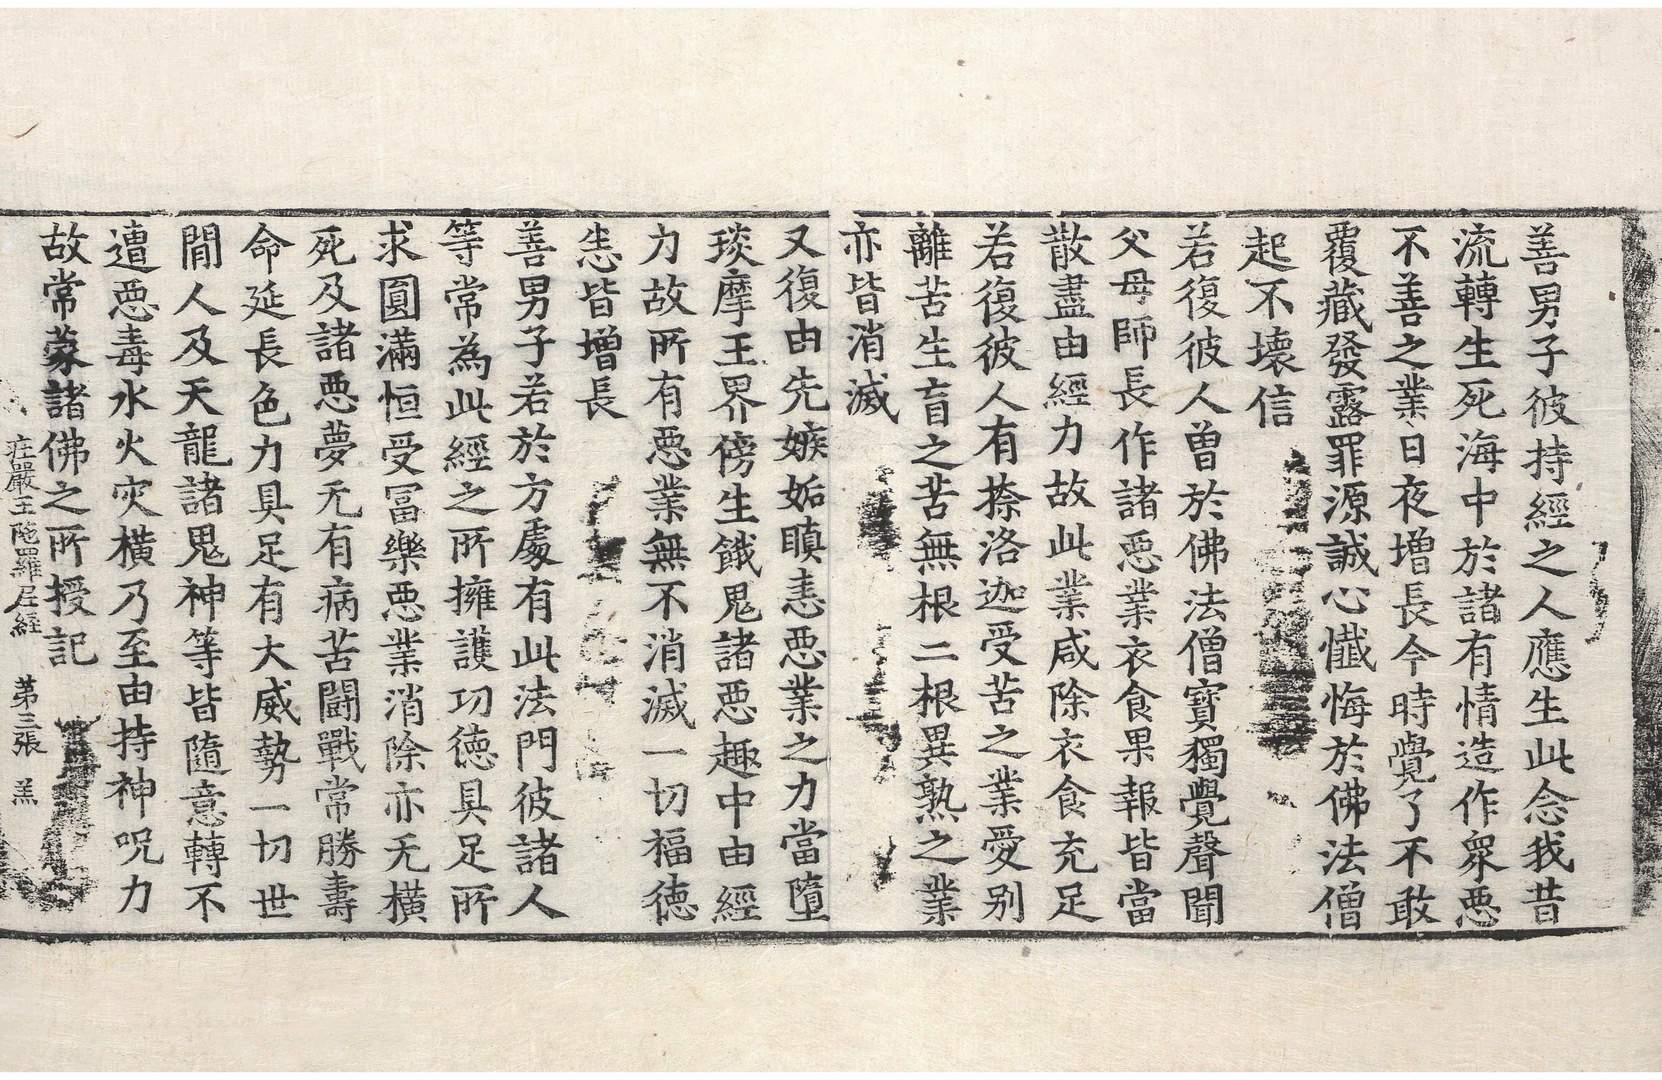 善男子彼持經之人應生此念我昔
流轉生死海中於諸有情造作衆惡
不善之業日夜增長今時覺了不敢
覆藏發露罪源誠心懺悔於佛法僧
起不壞信
若復彼人曽於佛法僧寶獨覺聲聞
父母師長作諸惡業衣食果報皆當
散盡由經力故此業咸除衣食充足
若復彼人有捺洛迦受苦之業愛别
離苦生盲之苦無根二根異熟之業
亦皆消滅
又復由先嫉妬瞋恚惡業之力當墮
琰摩王界傍生餓鬼諸惡趣中由經
力故所有惡業無不消滅一切福徳
恙皆增長
善男子若於方處有此法門彼諸人
等常為此經之所擁護功徳具足所
求圓滿恒受冨樂惡業消除亦无横
死及諸惡夢无有病苦鬪戰常勝壽
命延長色力具足有大威勢一切世
閒人及天龍諸鬼神等皆隨意轉不
遭惡毒水火灾横乃至由持神呪力
故常蒙諸佛之所授記
庄嚴王陁羅尼經 第三張 羔